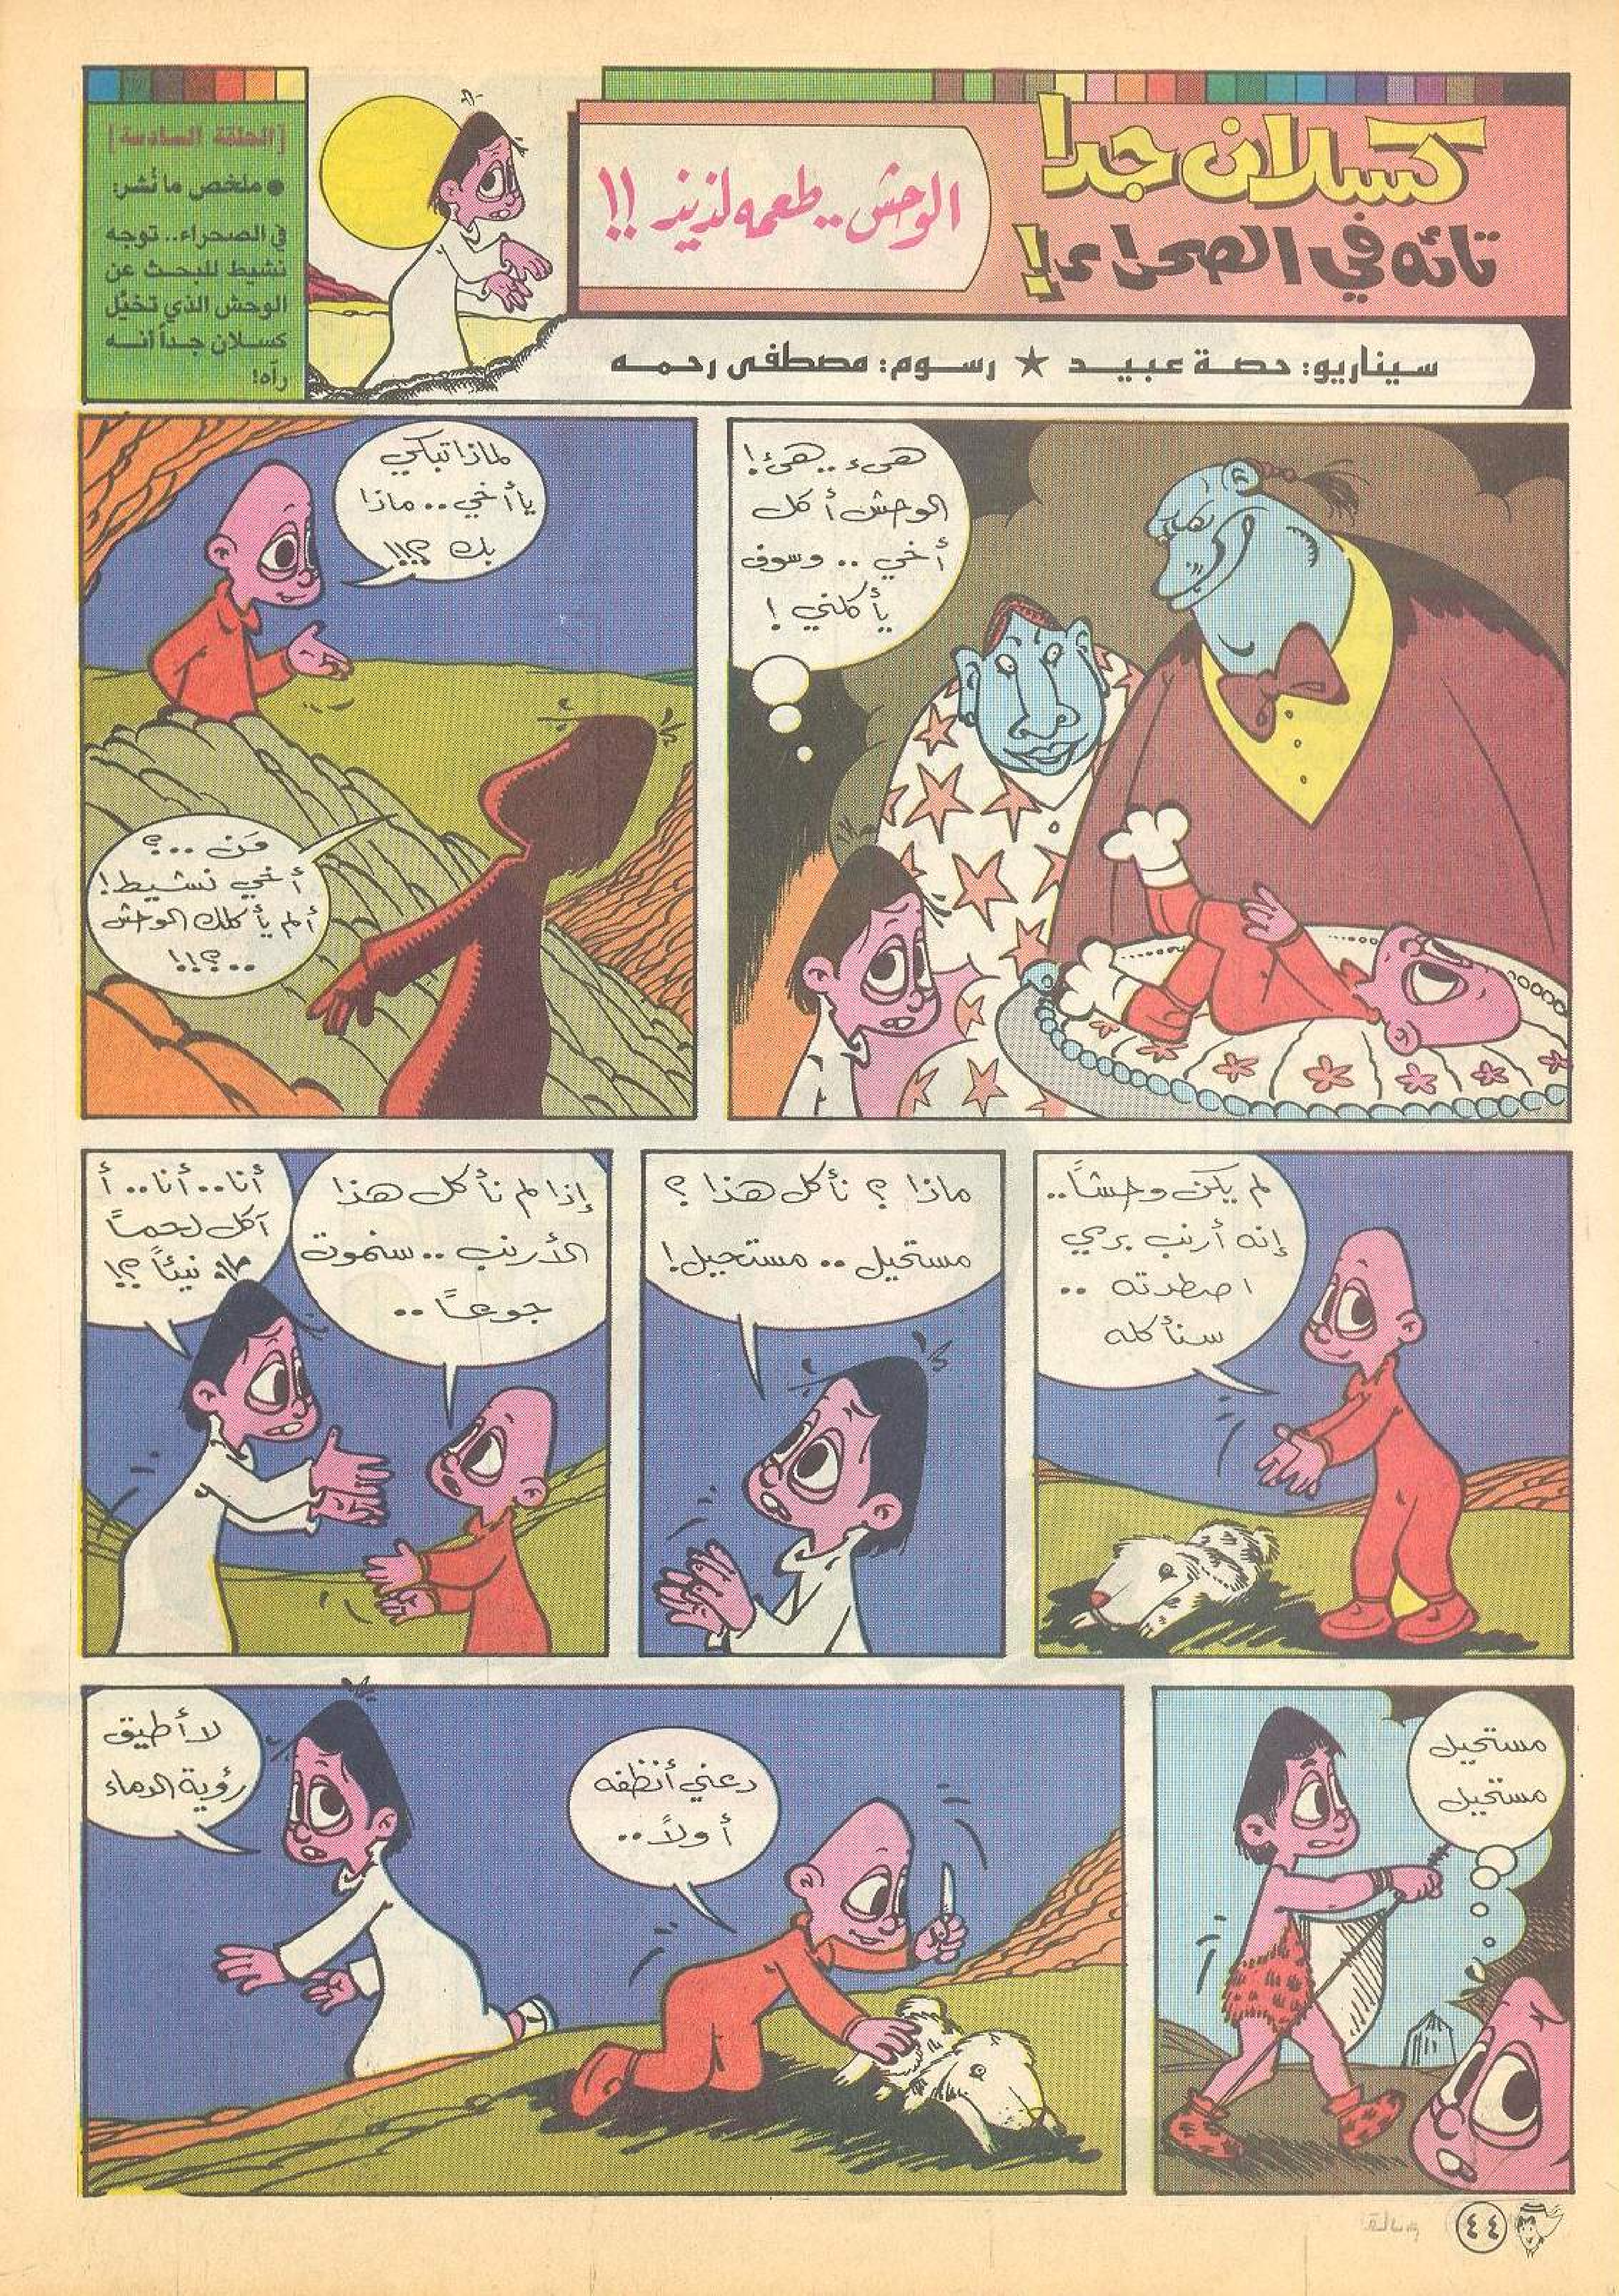 كسلان جدا
تائه في الصحراء!
الوحش.. طعمه لذيذ!!
سيناريو: حصة عبيد ★ رسوم: مصطفى رحمه
[الحلقة السادسة]
● ملخص ما نُشر:
في الصحراء.. توجه
نشيط للبحث عن
الوحش الذي تخيَّل
كسلان جداً أنه
رآه!
هيء.. هيء!
الوحش أكل
أخي .. وسوف
يأكلني !
لماذا تبكي
يا أخي .. ماذا
بك ؟!!!
مَن ...؟
أخي نشيط!
ألم يأكلك الوحش
..؟!!
لم يكن وحشاً..
إنه أرنب بري
اصطدته ..
سنأكله
ماذا ؟ نأكل هذا ؟
مستحيل .. مستحيل!
إذا لم نأكل هذا
الأرنب .. سنموت
جوعاً ..
أنا.. أنا.. أ
آكل لحماً
نيئاً ؟!
مستحيل
مستحيل
دعني أنظفه
أولاً ..
لا أطيق
رؤية الدماء
٤٤